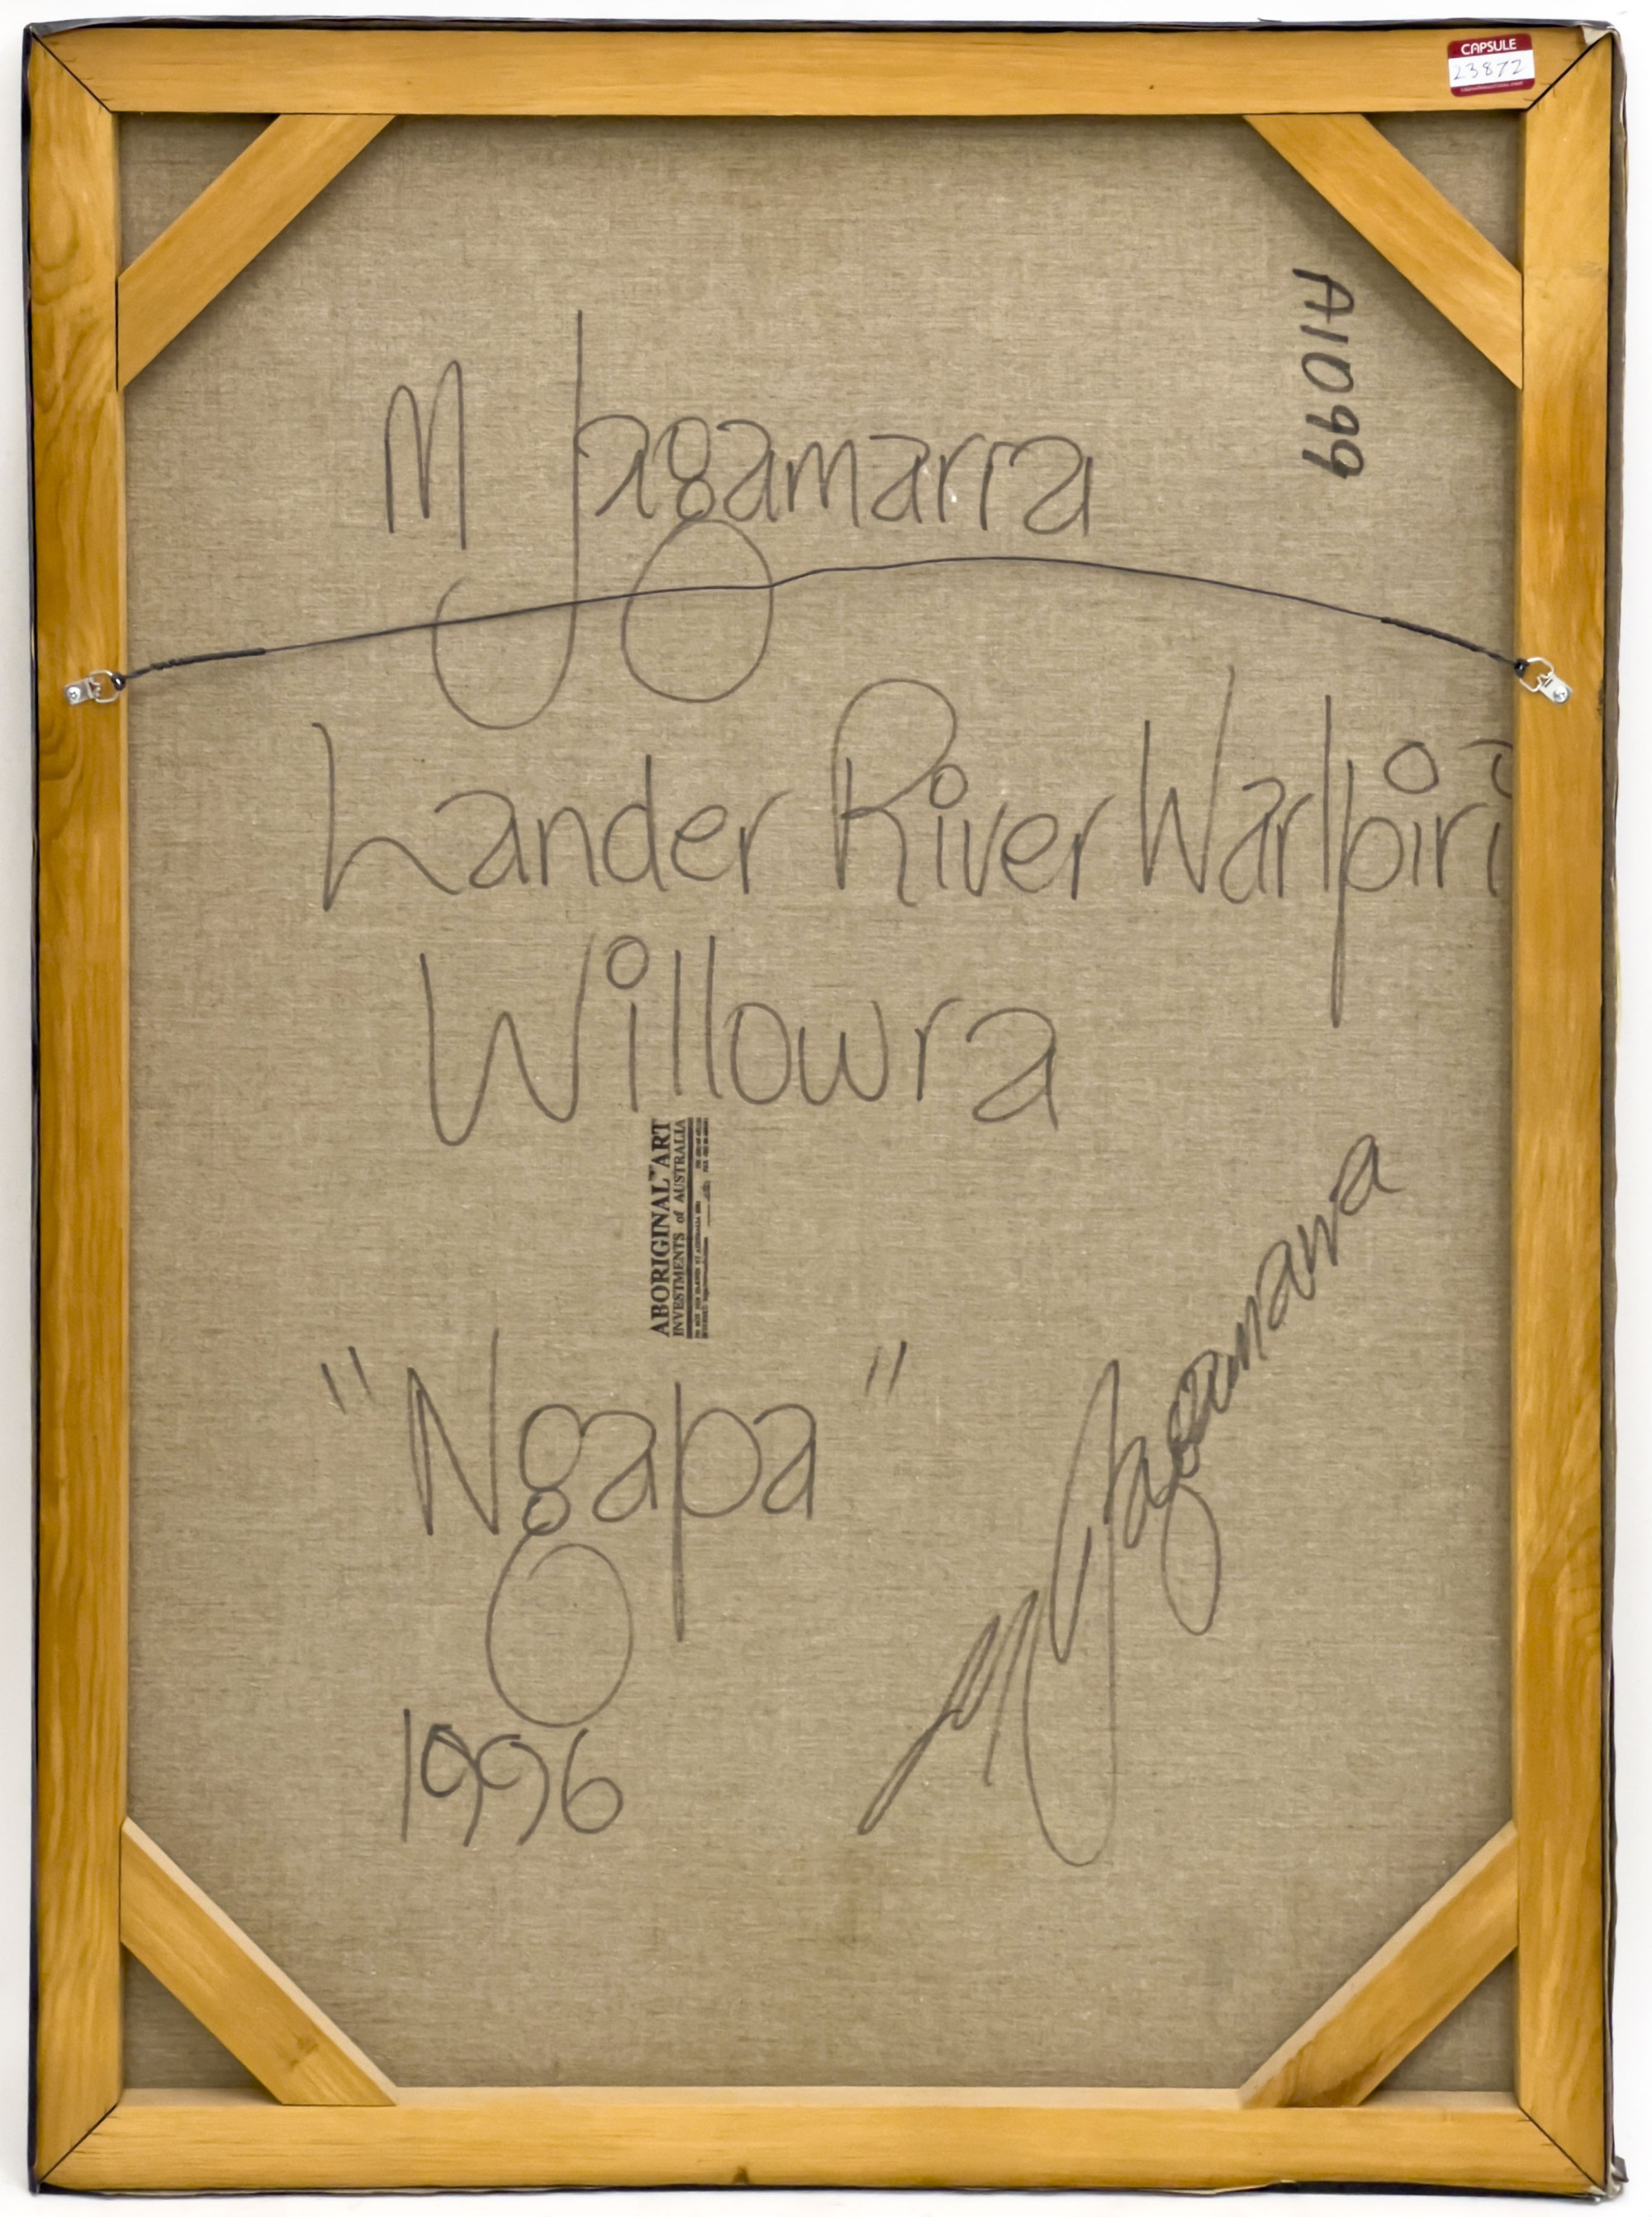 CAPSULE
23872
A1099
M Jagamarra
Lander River Warlpiri
Willowra
ABORIGINAL ART
INVESTMENTS of AUSTRALIA
"Ngapa"
M Jagamarra
1996